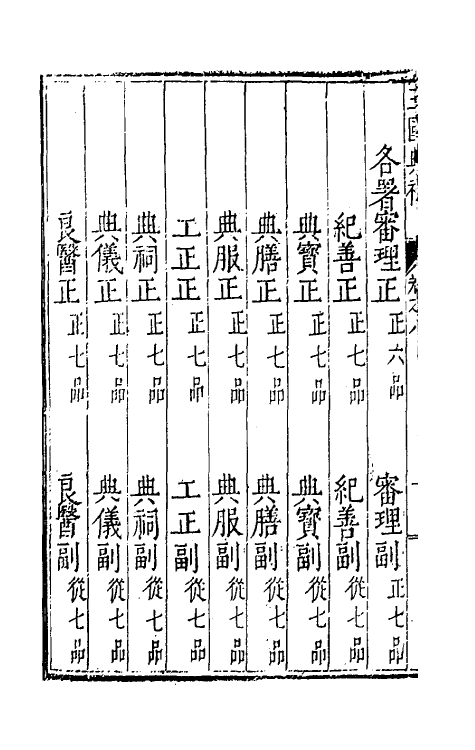 王國典禮 卷之八
各署審理正正六品 審理副正七品
紀善正正七品 紀善副從七品
典寶正正七品 典寶副從七品
典膳正正七品 典膳副從七品
典服正正七品 典服副從七品
工正正正七品 工正副從七品
典祠正正七品 典祠副從七品
典儀正正七品 典儀副從七品
良醫正正七品 良醫副從七品